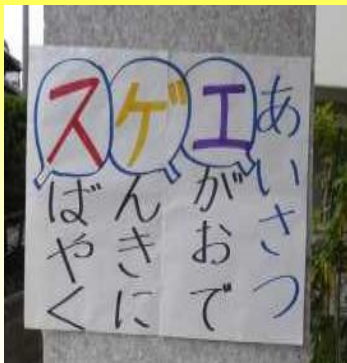 あいさつ
エがおで
ゲんきに
スばやく